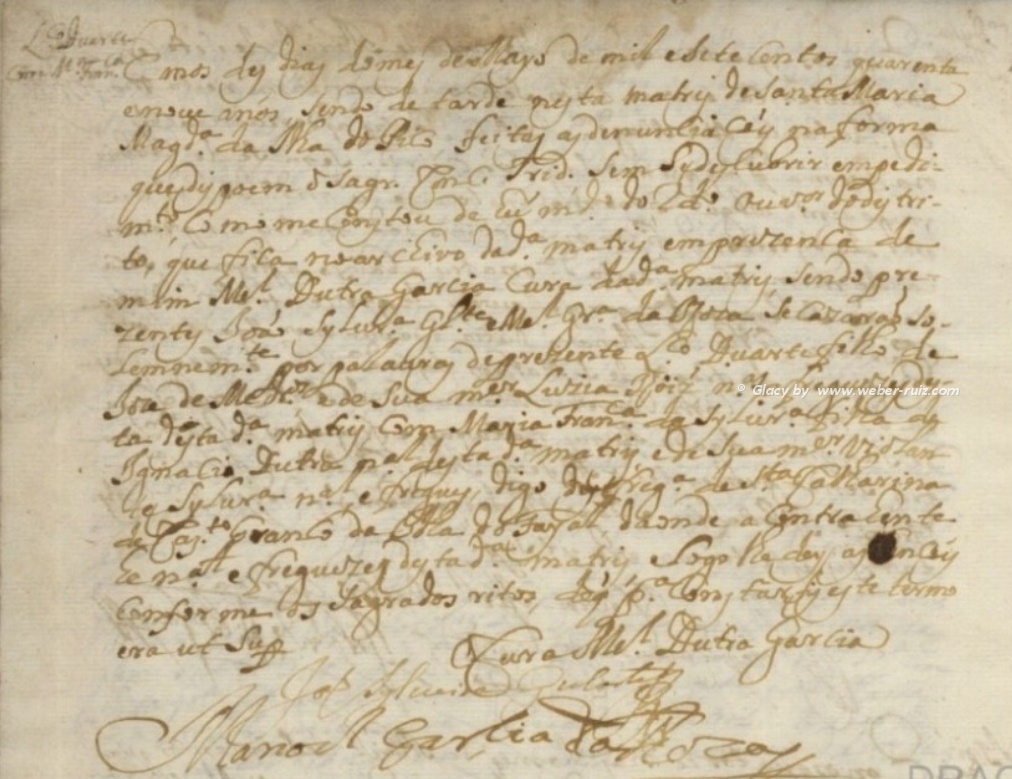 L.ço Duarte
Com M.ª Fran.ca
Em os des dias do mes de Mayo de mil e sete centos quarenta
e nove anos, sendo de tarde nesta matris de Santa Maria
Magd.ª da Ilha do Pico feitas as denunciacois na forma
que dispoem o Sagr. Conc. Trid. sem se descubrir empedi-
m.to Como me Constou de
to, que fica no archivo da d.ª matris em prezenca de
mim M.el Dutra Garcia Cura da d.ª matris sendo pre-
zentes João Sylvr.ª Gl.te e M.el Gr.ª da Roza se cazarão so-
lemnem.te por palauras de prezente L.ço Duarte filho de
João de e de sua m.er Luzia Roiz
ta desta d.ª matris com Maria Fran.ca da Sylvr.ª filha de
Ignacio Dutra n.al desta d.ª matris e de sua m.er Violan
te Sylvr.ª n.al e freguez, digo da freg.ª de S.ta Catharina
de Cas.to branco da Ilha do Fayal donde a Contraente
he n.al e fregueza desta d.ª matris e logo lhe dey as bencois
conforme os sagrados ritos, de q p.ª Constar fis este termo
era ut Supª
O Cura M.el Dutra Garcia
João Sylveira Gularte
Manoel Garcia da Roza
© Glacy by www.weber-ruiz.com